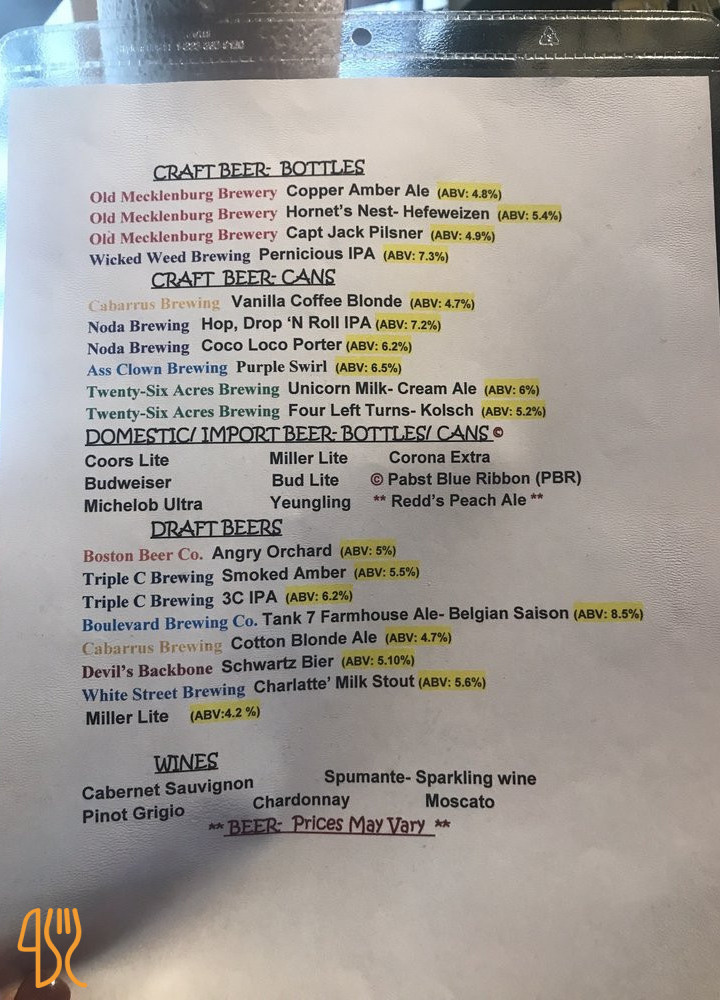 CRAFT BEER- BOTTLES
Old Mecklenburg Brewery Copper Amber Ale (ABV: 4.8%)
Old Mecklenburg Brewery Hornet's Nest- Hefeweizen (ABV: 5.4%)
Old Mecklenburg Brewery Capt Jack Pilsner (ABV: 4.9%)
Wicked Weed Brewing Pernicious IPA (ABV: 7.3%)
CRAFT BEER- CANS
Cabarrus Brewing Vanilla Coffee Blonde (ABV: 4.7%)
Noda Brewing Hop, Drop 'N Roll IPA (ABV: 7.2%)
Noda Brewing Coco Loco Porter (ABV: 6.2%)
Ass Clown Brewing Purple Swirl (ABV: 6.5%)
Twenty-Six Acres Brewing Unicorn Milk- Cream Ale (ABV: 6%)
Twenty-Six Acres Brewing Four Left Turns- Kolsch (ABV: 5.2%)
DOMESTIC/ IMPORT BEER- BOTTLES/ CANS ©
Coors Lite Miller Lite Corona Extra
Budweiser Bud Lite © Pabst Blue Ribbon (PBR)
Michelob Ultra Yeungling ** Redd's Peach Ale **
DRAFT BEERS
Boston Beer Co. Angry Orchard (ABV: 5%)
Triple C Brewing Smoked Amber (ABV: 5.5%)
Triple C Brewing 3C IPA (ABV: 6.2%)
Boulevard Brewing Co. Tank 7 Farmhouse Ale- Belgian Saison (ABV: 8.5%)
Cabarrus Brewing Cotton Blonde Ale (ABV: 4.7%)
Devil's Backbone Schwartz Bier (ABV: 5.10%)
White Street Brewing Charlatte' Milk Stout (ABV: 5.6%)
Miller Lite (ABV:4.2 %)
WINES
Cabernet Sauvignon Spumante- Sparkling wine
Pinot Grigio Chardonnay Moscato
** BEER- Prices May Vary **